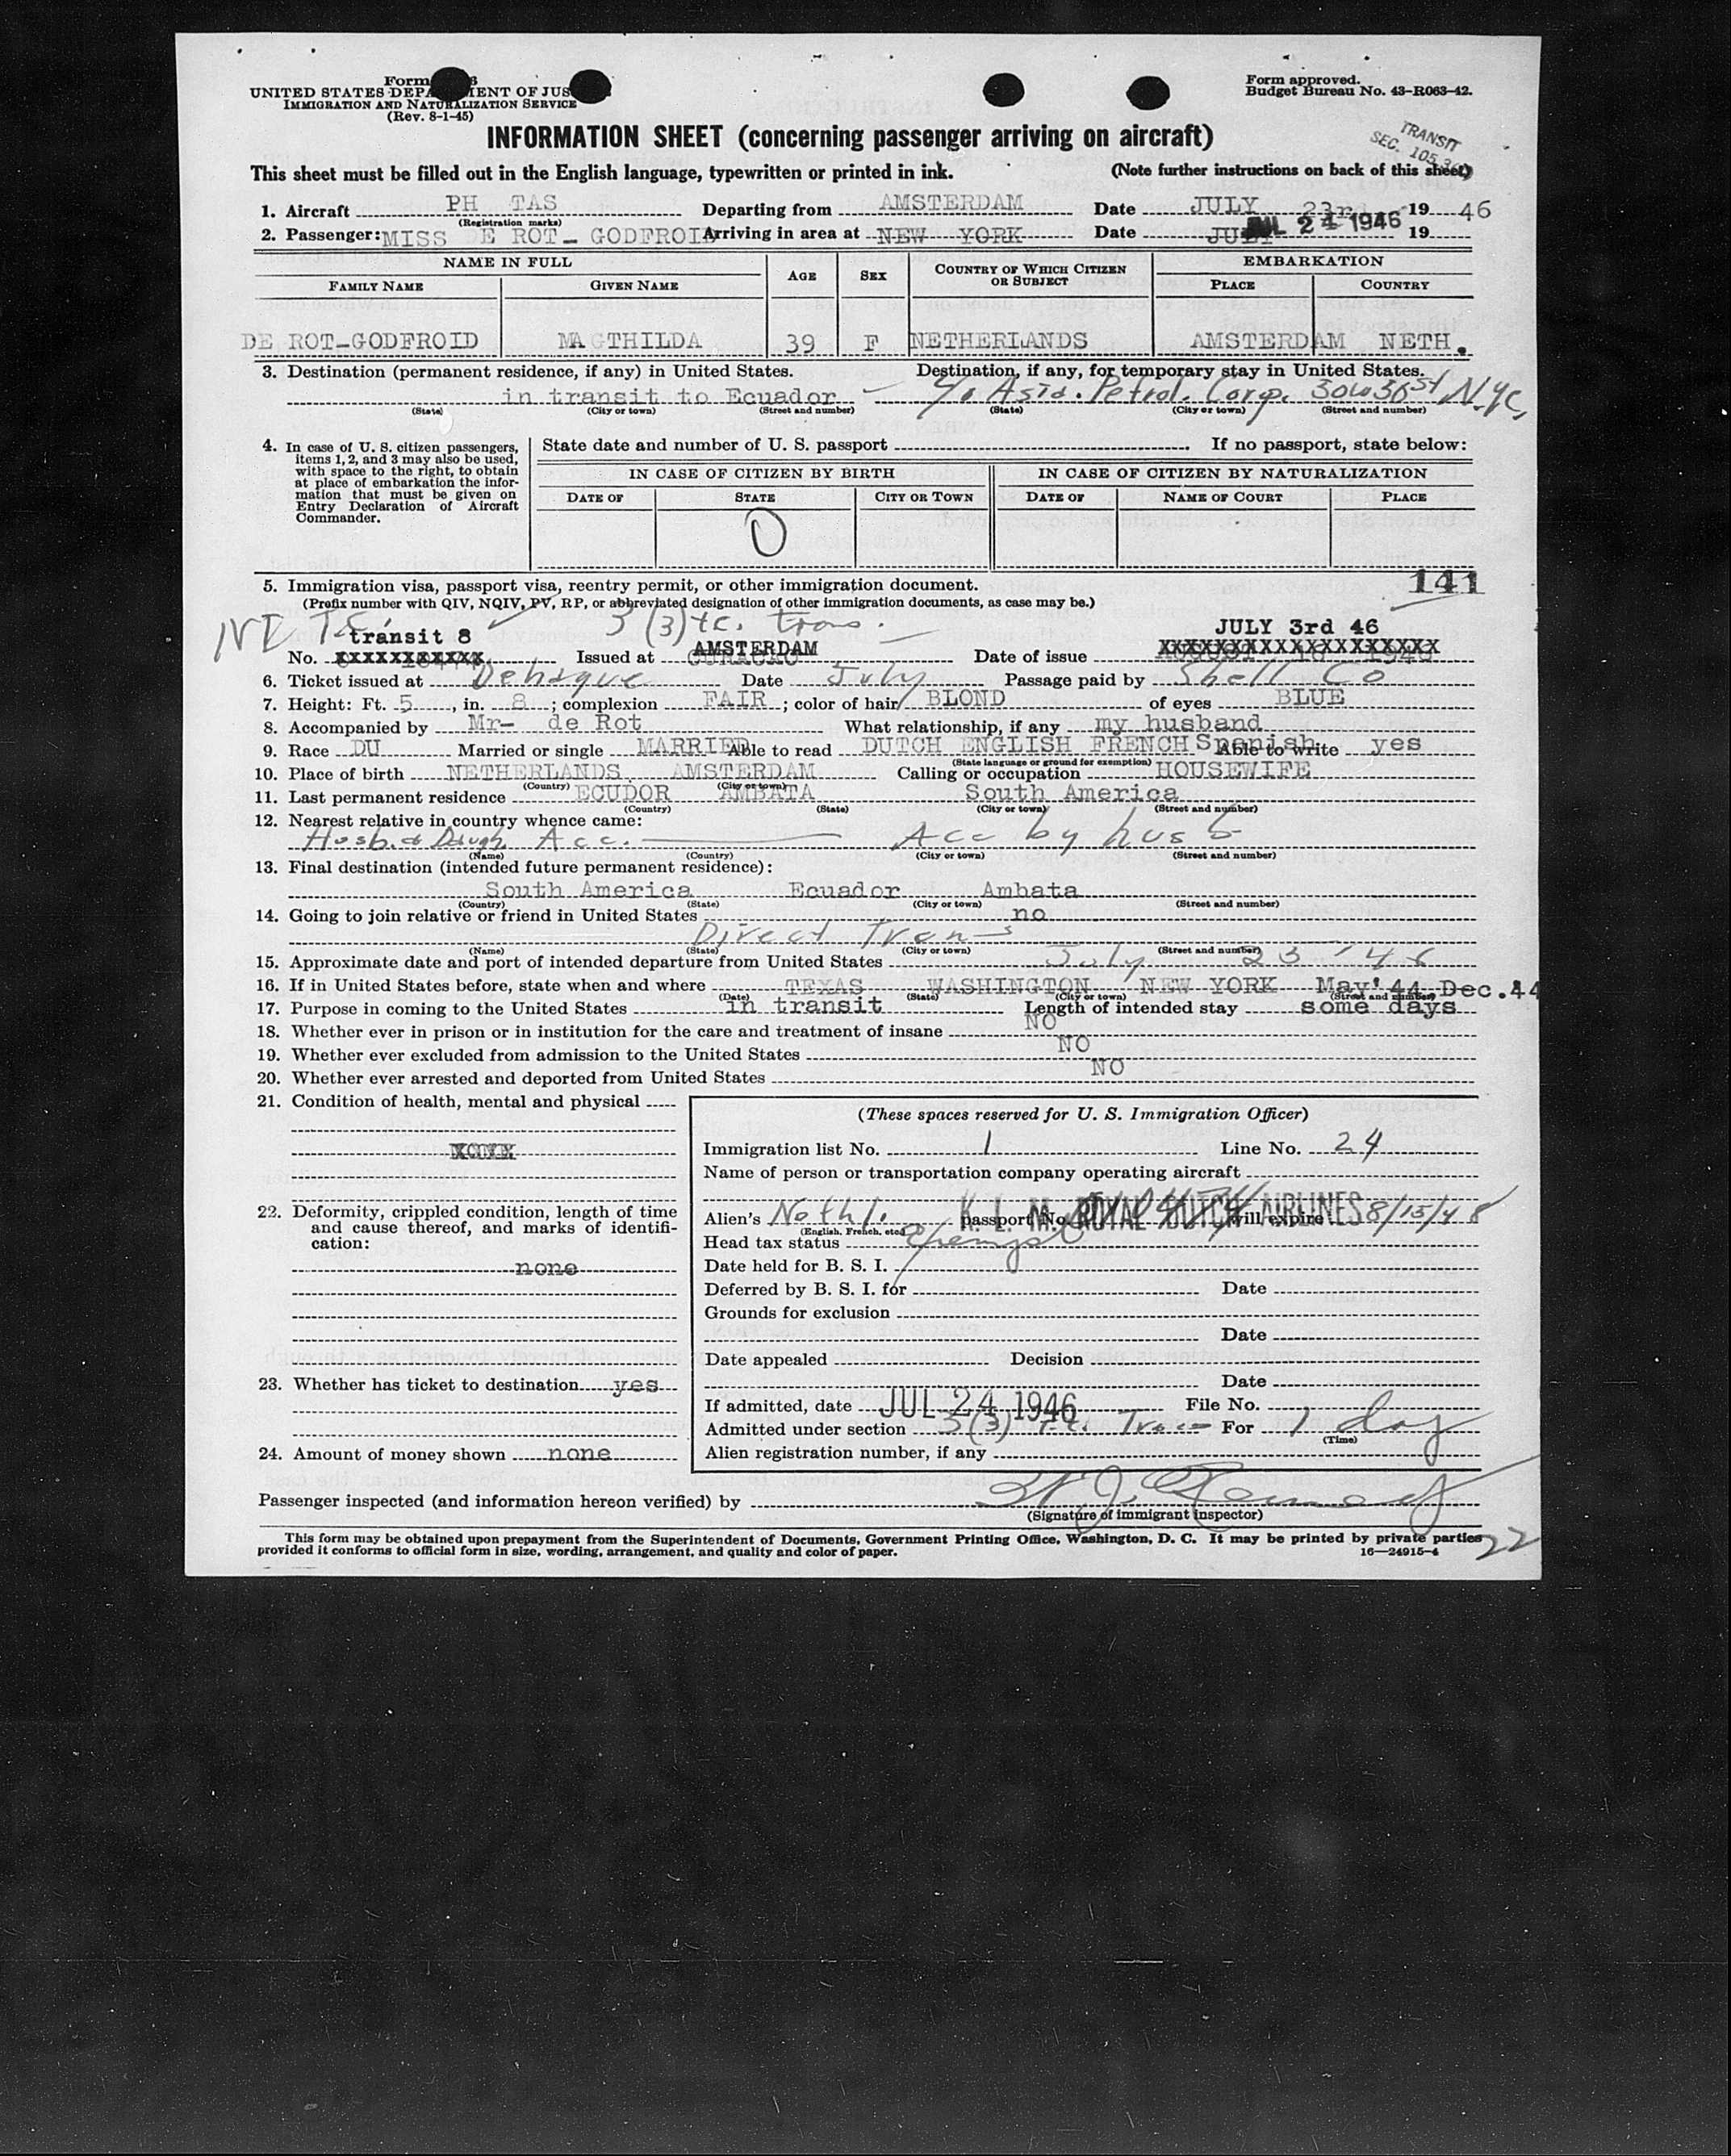 Form
UNITED STATES DEPA MENT OF JUS
IMMIGRATION AND NATURALIZATION SERVICE
(Rev. 8-1-45)
Form approved.
Budget Bureau No. 43-R063-42.
INFORMATION SHEET (concerning passenger arriving on aircraft)
TRANSIT
SEC. 105.3
This sheet must be filled out in the English language, typewritten or printed in ink. (Note further instructions on back of this sheet)
1. Aircraft PH TAS Departing from AMSTERDAM Date JULY 23rd 1946
(Registration marks)
2. Passenger: MISS E ROT- GODFROID Arriving in area at NEW YORK Date JULY JUL 24 1946 19
NAME IN FULL AGE SEX COUNTRY OF WHICH CITIZEN OR SUBJECT EMBARKATION
FAMILY NAME GIVEN NAME PLACE COUNTRY
DE ROT-GODFROID MAGTHILDA 39 F NETHERLANDS AMSTERDAM NETH.
3. Destination (permanent residence, if any) in United States. Destination, if any, for temporary stay in United States.
in transit to Ecuador - c/o Asia. Petrol. Corp. 30W 50 St N.Y.C,
(State) (City or town) (Street and number) (State) (City or town) (Street and number)
4. In case of U. S. citizen passengers, items 1, 2, and 3 may also be used, with space to the right, to obtain at place of embarkation the information that must be given on Entry Declaration of Aircraft Commander.
State date and number of U. S. passport If no passport, state below:
IN CASE OF CITIZEN BY BIRTH IN CASE OF CITIZEN BY NATURALIZATION
DATE OF STATE CITY OR TOWN DATE OF NAME OF COURT PLACE
O
5. Immigration visa, passport visa, reentry permit, or other immigration document. 141
(Prefix number with QIV, NQIV, PV, RP, or abbreviated designation of other immigration documents, as case may be.)
3 (3) tc. trans.
transit 8 AMSTERDAM JULY 3rd 46
No. XXXXXXXXXXX Issued at CURACAO Date of issue XXXXXXXXXXXXXXXXXXX
6. Ticket issued at DeHague Date July Passage paid by Shell Co
7. Height: Ft. 5, in. 8; complexion FAIR; color of hair BLOND of eyes BLUE
8. Accompanied by Mr- de Rot What relationship, if any my husband
9. Race DU Married or single MARRIED Able to read DUTCH ENGLISH FRENCH Spanish Able to write yes
(State language or ground for exemption)
10. Place of birth NETHERLANDS AMSTERDAM Calling or occupation HOUSEWIFE
(Country) (City or town)
11. Last permanent residence ECUDOR AMBATA South America
(Country) (State) (City or town) (Street and number)
12. Nearest relative in country whence came:
Husb. & Daugh Acc. Acc by husb
(Name) (Country) (City or town) (Street and number)
13. Final destination (intended future permanent residence):
South America Ecuador Ambata
(Country) (State) (City or town) (Street and number)
14. Going to join relative or friend in United States no
Direct Trans
(Name) (State) (City or town) (Street and number)
15. Approximate date and port of intended departure from United States July 23 '46
16. If in United States before, state when and where TEXAS WASHINGTON NEW YORK May' 44 Dec.44
(Date) (State) (City or town) (Street and number)
17. Purpose in coming to the United States in transit Length of intended stay some days
18. Whether ever in prison or in institution for the care and treatment of insane NO
19. Whether ever excluded from admission to the United States NO
20. Whether ever arrested and deported from United States NO
21. Condition of health, mental and physical
22. Deformity, crippled condition, length of time and cause thereof, and marks of identification:
none
23. Whether has ticket to destination yes
24. Amount of money shown none
(These spaces reserved for U. S. Immigration Officer)
Immigration list No. 1 Line No. 24
Name of person or transportation company operating aircraft
K. L. M. ROYAL DUTCH AIRLINES
Alien's Nethl. passport No. will expire 8/15/48
(English, French, etc.)
Head tax status Exempt
Date held for B. S. I.
Deferred by B. S. I. for Date
Grounds for exclusion
Date
Date appealed Decision
Date
If admitted, date JUL 24 1946 File No.
Admitted under section 3(3) t.c. Trans For 1 day
(Time)
Alien registration number, if any
Passenger inspected (and information hereon verified) by
(Signature of immigrant inspector)
This form may be obtained upon prepayment from the Superintendent of Documents, Government Printing Office, Washington, D. C. It may be printed by private parties
provided it conforms to official form in size, wording, arrangement, and quality and color of paper. 16—24915-4
22